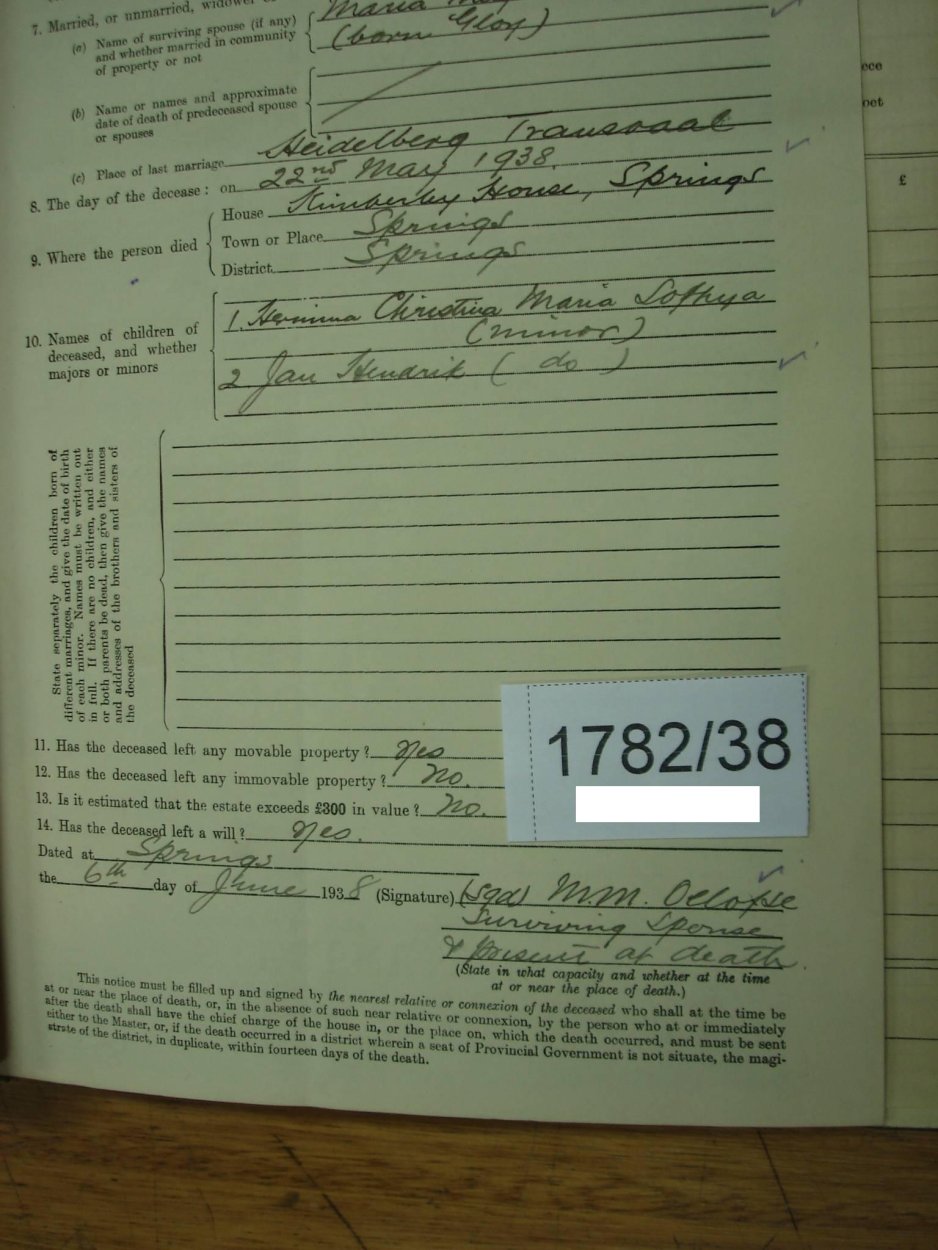 7. Married, or unmarried, widower
Maria
(a) Name of surviving spouse (if any)
and whether married in community
of property or not
(born Gloy)
(b) Name or names and approximate
date of death of predeceased spouse
or spouses
(c) Place of last marriage Heidelberg Transvaal
8. The day of the decease: on 22nd May 1938
9. Where the person died
House Kimberley House, Springs
Town or Place Springs
District Springs
10. Names of children of
deceased, and whether
majors or minors
1. Hermina Christina Maria Sophya
(minor)
2 Jan Hendrik (do)
State separately the children born of
different marriages, and give the date of birth
of each minor. Names must be written out
in full. If there are no children, and either
or both parents be dead, then give the names
and addresses of the brothers and sisters of
the deceased
11. Has the deceased left any movable property? Yes
12. Has the deceased left any immovable property? No.
13. Is it estimated that the estate exceeds £300 in value? No.
14. Has the deceased left a will? Yes.
1782/38
Dated at Springs
the 6th day of June 1938 (Signature) (Sgd) M.M. Oelofse
Surviving Spouse
& present at death
(State in what capacity and whether at the time
at or near the place of death.)
This notice must be filled up and signed by the nearest relative or connexion of the deceased who shall at the time be
at or near the place of death, or, in the absence of such near relative or connexion, by the person who at or immediately
after the death shall have the chief charge of the house in, or the place on, which the death occurred, and must be sent
either to the Master, or, if the death occurred in a district wherein a seat of Provincial Government is not situate, the magi-
strate of the district, in duplicate, within fourteen days of the death.
£